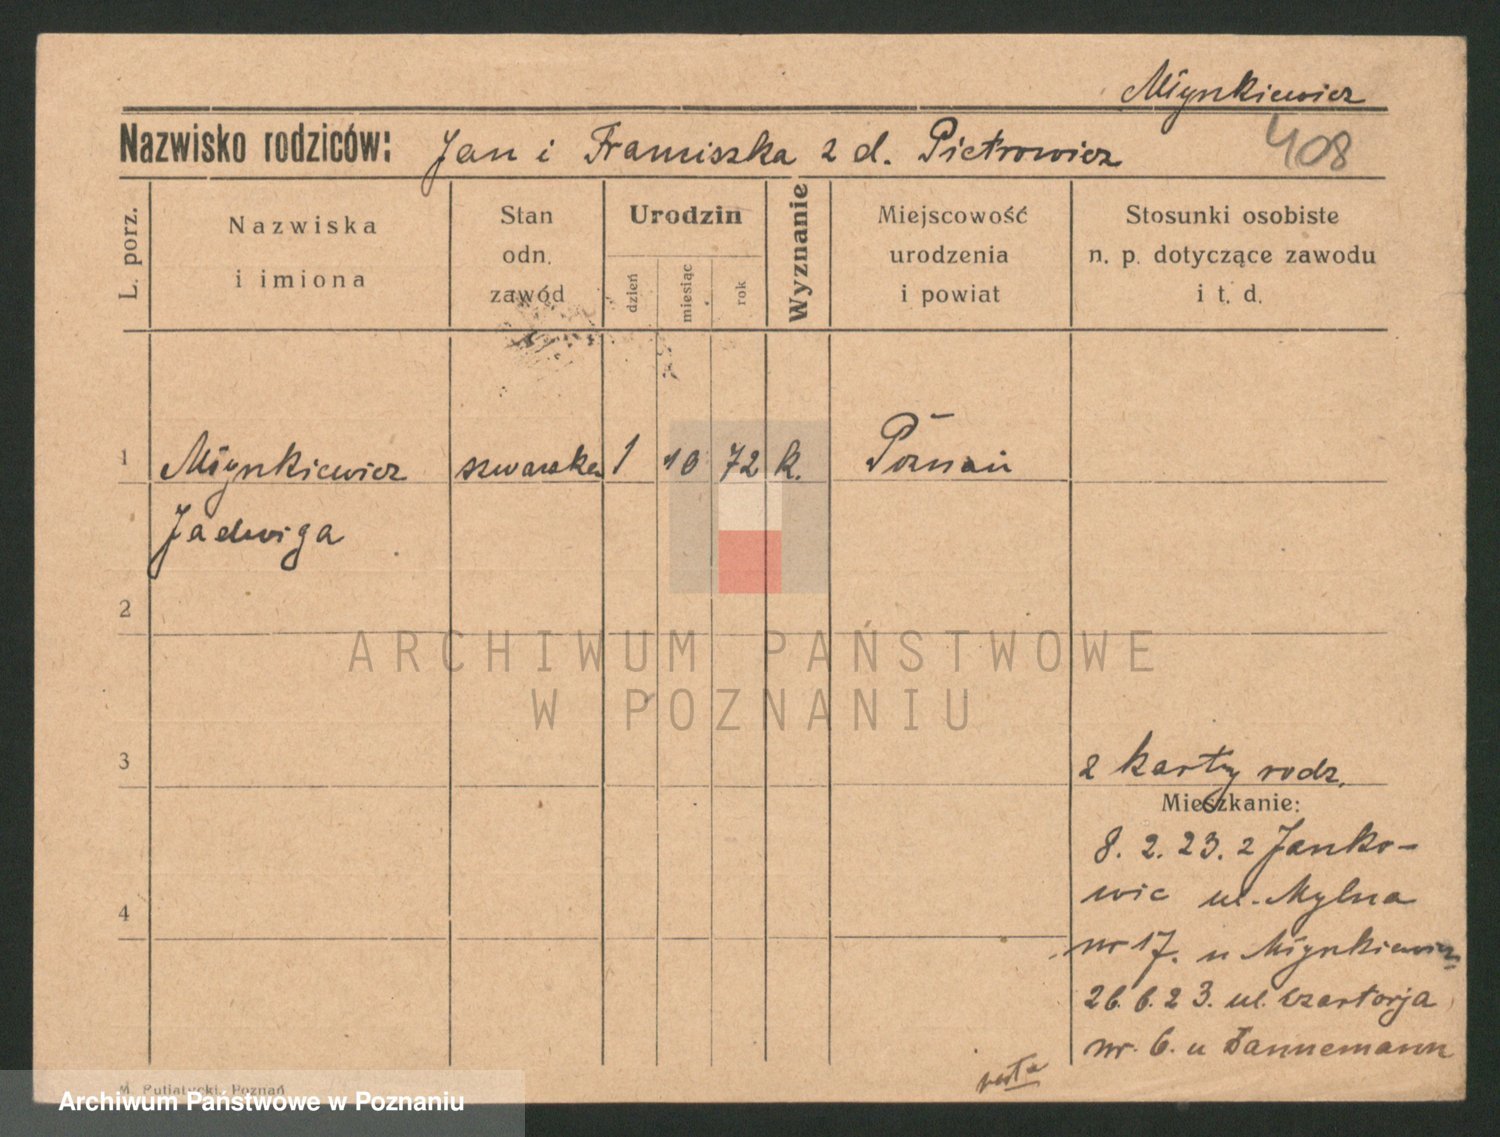 Młynkiewicz
Nazwisko rodziców: Jan i Franciszka z d. Pietrowicz
408
L. porz.
Nazwiska
i imiona
Stan
odn.
zawód
Urodzin
dzień
miesiąc
rok
Wyznanie
Miejscowość
urodzenia
i powiat
Stosunki osobiste
n. p. dotyczące zawodu
i t. d.
1 Młynkiewicz szwaczka 1 10 72 k. Poznań
Jadwiga
2
3
4
2 karty rodz.
Mieszkanie:
8. 2. 23. z Janko-
wic ul. Mylna
nr 17. u Młynkiewicz
26. 6. 23. ul. Czartorja
nr. 6. u Dannemann
M. Putiatycki, Poznań
ARCHIWUM PAŃSTWOWE
W POZNANIU
Archiwum Państwowe w Poznaniu